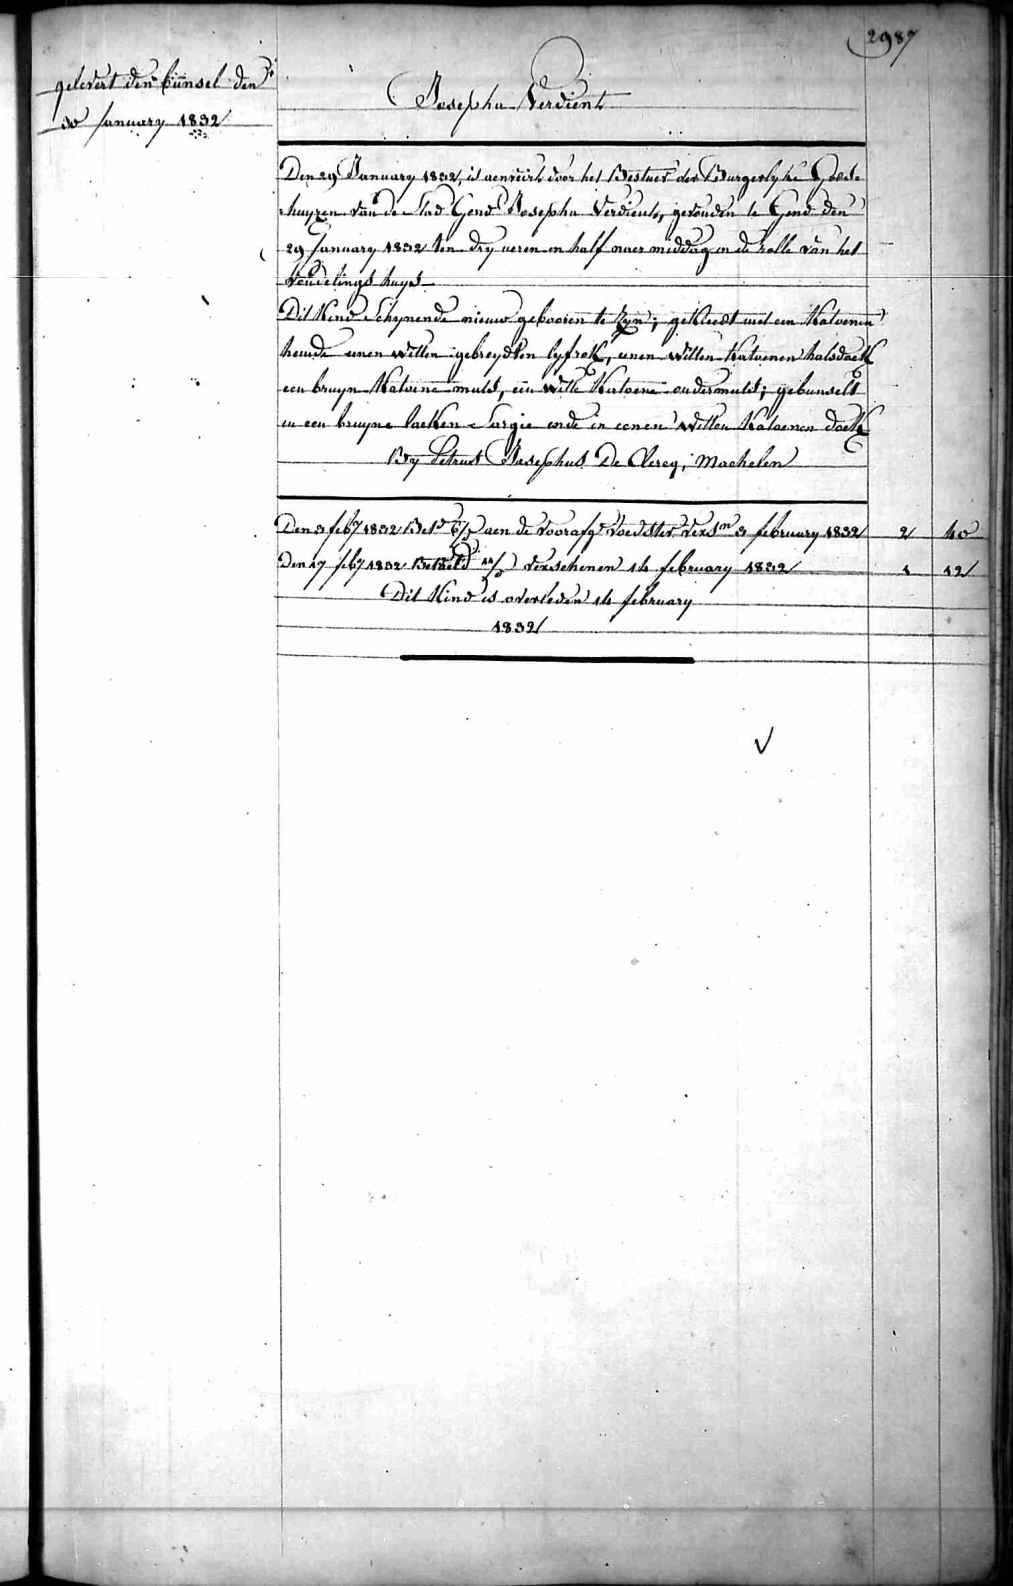 2987
gelevert den bunsel den
30 January 1832
Josepha Verdient
Den 29 January 1832, is aenveirt door het Bestuer der Burgerlyke Gods-
huyzen van de Stad Gend Josepha Verdient, gevonden te Gend den
29 January 1832 ten dry ueren en half naer middag in de rolle van het
vondelings huys
Dit Kind Schynende nieuw gebooren te Zyn; gekleed met een Katoenen
hemde eenen witten gebreydden lyfrok, eenen witten Katoenen halsdoek
een bruyn Katoene muts, een witte Katoene ondermuts; gebunselt
in een bruyne laeken Sargie ende in eenen witten Katoenen doek
By Petrus Josephus De Clercq, Machelen
Den 3 feby 1832 Bet.d 6/ aen de voorafg.e voedster vers.n 3 february 1832 2 40
Den 17 feby 1832 Betaeld 11/ verschenen 14 february 1832 1 12
Dit Kind is overleden 14 february
1832